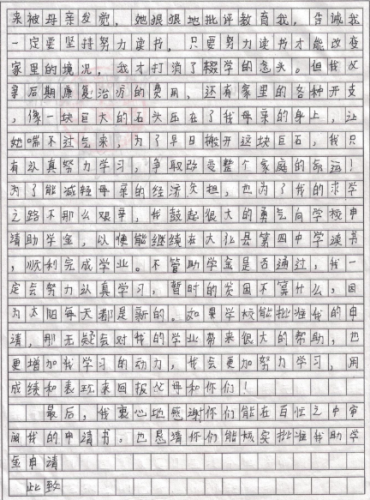 来被母亲发觉，她狠狠地批评教育我，告诫我
一定要坚持努力读书，只要努力读书才能改变
家里的境况，我才打消了辍学的念头。但我父
亲后期康复治疗的费用，还有家里的各种开支
，像一块巨大的石头压在了我母亲的身上，让
她喘不过气来，为了早日搬开这块巨石，我只
有认真努力学习，争取改变整个家庭的命运！
为了能减轻母亲的经济负担，也为了我的求学
之路不那么艰辛，我鼓起很大的勇气向学校申
请助学金，以便能继续在大化县第四中学读书
，顺利完成学业。不管助学金是否通过，我一
定会努力认真学习，暂时的贫困不算什么，因
为太阳每天都是新的。如果学校能批准我的申
请，那无疑会对我的学业带来很大的帮助，也
更增加我学习的动力，我会更加努力学习，用
成绩和表现来回报父母和你们！
最后，我衷心地感谢你们能在百忙之中审
阅我的申请书。也恳请你们能够实批准我助学
金申请
此致